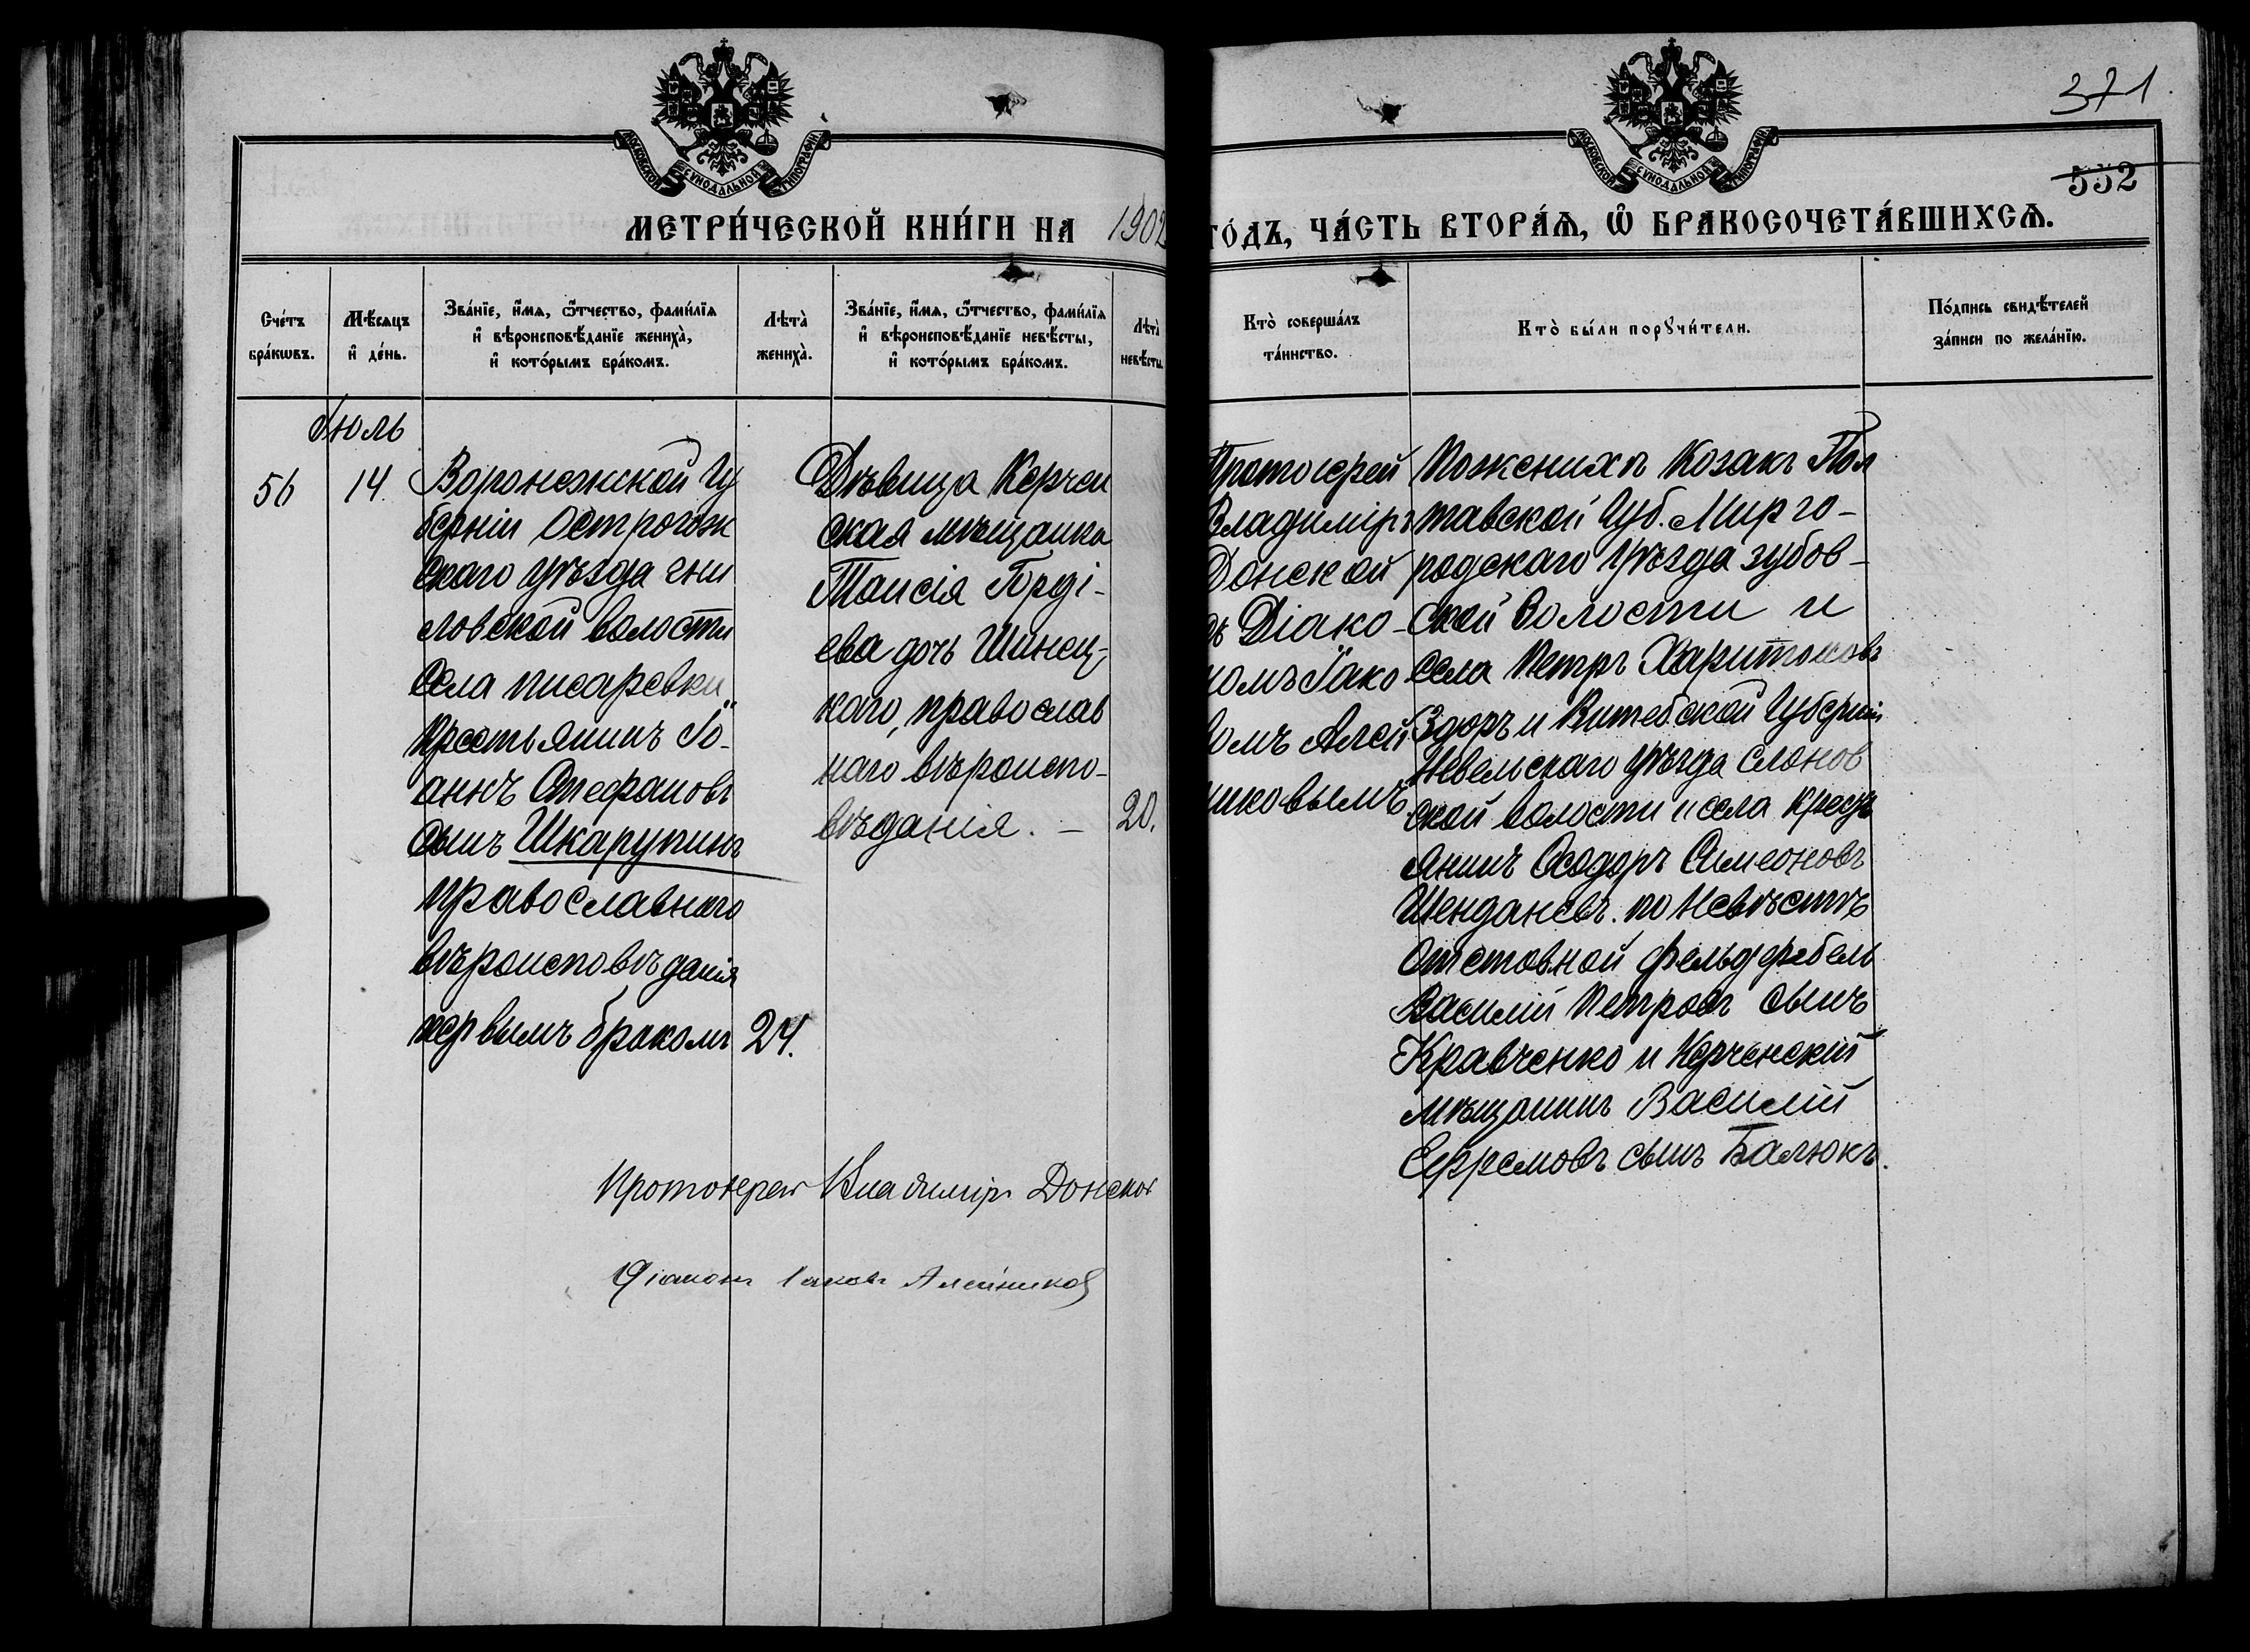 371
552
МОСКОВСКОЙ СѴНОДАЛЬНОЙ ТИПОГРАФІИ
МОСКОВСКОЙ СѴНОДАЛЬНОЙ ТИПОГРАФІИ
МЕТРИ́ЧЕСКОЙ КНИ́ГИ НА 1902
ГО́ДЪ, ЧА́СТЬ ВТОРА́Ѧ, Ѽ БРАКОСОЧЕТА́ВШИХСѦ.
Сче́тъ
бра́кѡвъ.
Мѣ́сяцъ
и҆ де́нь.
Зва́нїе, и҆́мя, ѻ҆́тчество, фами́лїя
и҆ вѣроисповѣ́данїе жениха̀,
и҆ кото́рымъ бра́комъ.
Лѣта̀
жениха̀.
Зва́нїе, и҆́мя, ѻ҆́тчество, фами́лїя
и҆ вѣроисповѣ́данїе невѣ́сты,
и҆ кото́рымъ бра́комъ.
Лѣта̀
невѣ́сты.
Кто̀ соверша́лъ
та́инство.
Кто̀ бы́ли порꙋчи́тели.
По́дпись свидѣ́телей
за́писи по жела́нїю.
Июль
56
14.
Воронежской Гу
берніи Острогож
скаго уѣзда гни
ловской волости
села писаревки
Крестьянинъ Іо-
аннъ Стефановъ
сынъ Шкарупинъ
православнаго
вѣроисповѣданія
первымъ бракомъ
24.
Дѣвица Керчен
ская мѣщанка
Таисія Горді-
ева дочь Шинец-
каго, православ
наго вѣроиспо-
вѣданія. —
20.
Протоіерей
Владиміръ
Донской
съ Діако-
номъ Іако
вомъ Алей
никовымъ
По женихѣ Козакъ Пол
тавской Губ. Мирго-
родскаго Уѣзда зубов-
ской Волости и
села Петръ Харитоновъ
Здоръ и Витебской Губерніи
Невельскаго уѣзда Слонов
ской волости и села крест
янинъ Ѳеодоръ Симеоновъ
по Невѣстѣ
Отстовной фельдфебель
Василій Петровъ сынъ
Кравченко и Керченскій
мѣщанинъ Василій
Ефремовъ сынъ Балюкъ.
Протоіерей Владиміръ Донской
Діаконъ Іаковъ Алейниковъ